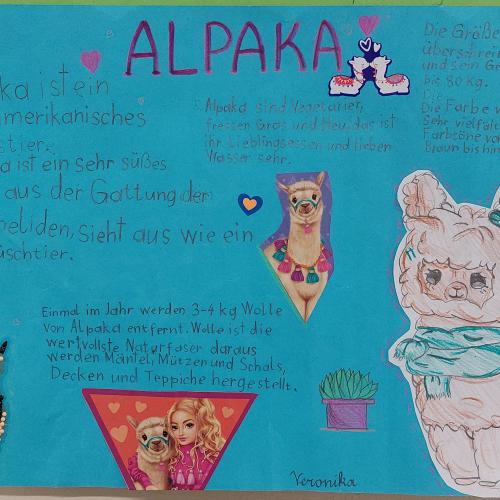 ALPAKA
ka ist ein
amerikanisches
stier.
a ist ein sehr süßes
aus der Gattung der
meliden, sieht aus wie ein
üschtier.
Alpaka sind Vegetarier,
fressen Gras und Heu, das ist
ihr Lieblingsessen und lieben
Wasser sehr.
Die Größe
überschrei
und sein Ge
bis 80 kg.
Die Farbe
sehr vielfäl
Farbtöne vo
Braun bis hin
Einmal im Jahr werden 3-4 kg Wolle
von Alpaka entfernt. Wolle ist die
wertvollste Naturfaser daraus
werden Mäntel, Mützen und Schals,
Decken und Teppiche hergestellt.
Veronika